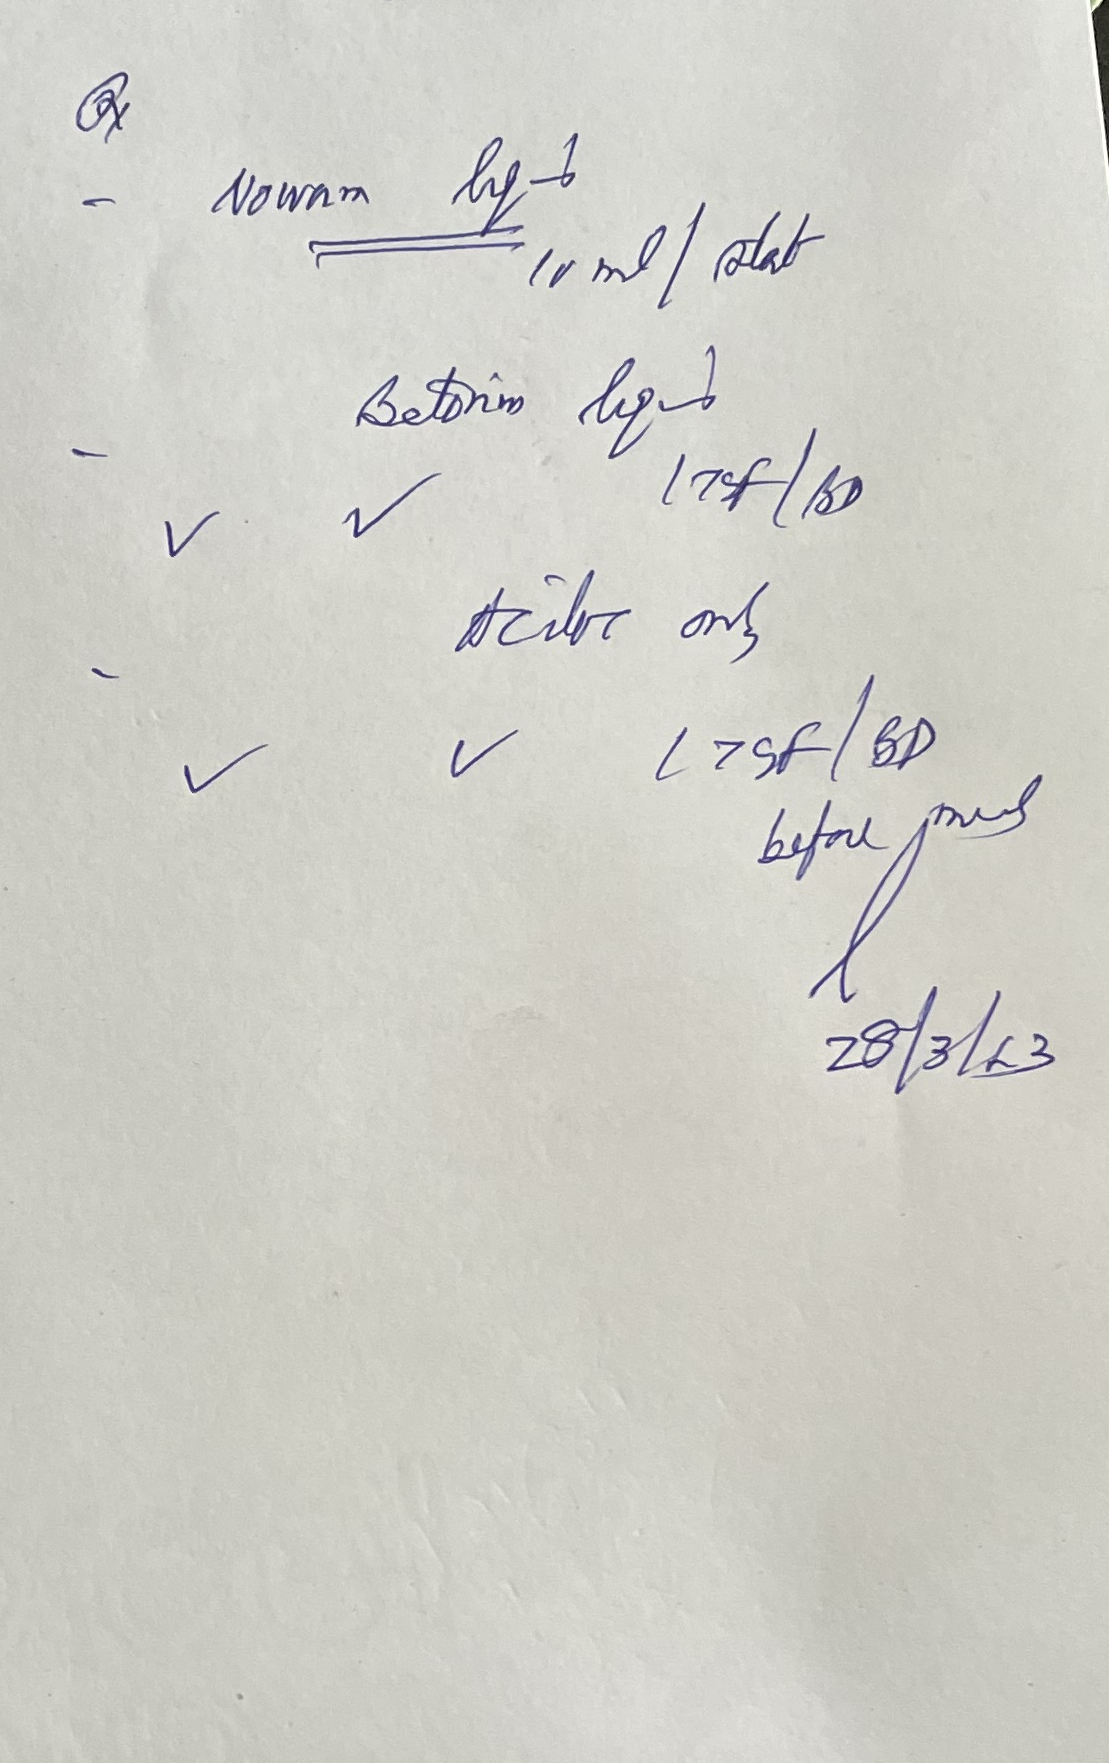 Rx
- Noworm liquid
10 ml / stat
- Betonin liquid
1 TSF / BD
Aciloc only
- 1 TSF / BD
before meals
28/3/23